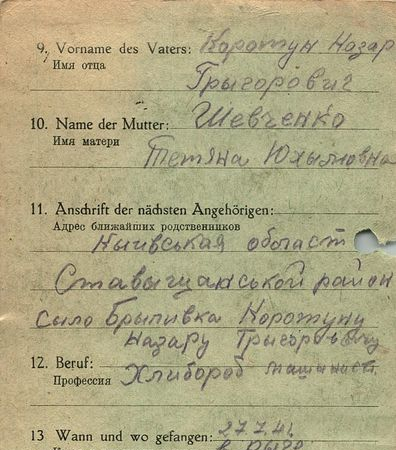 9. Vorname des Vaters: Коротун Назар
Имя отца
Грыгорович
10. Name der Mutter: Шевченко
Имя матери
Тетяна Юхымовна
11. Anschrift der nächsten Angehörigen:
Адрес ближайших родственников
Кыивськая област
Ставыщанськой район
сыло Брыливка Коротуну
Назару Грыгоровичу
12. Beruf: Хлибороб машиніст
Профессия
13 Wann und wo gefangen: 27.7.41.